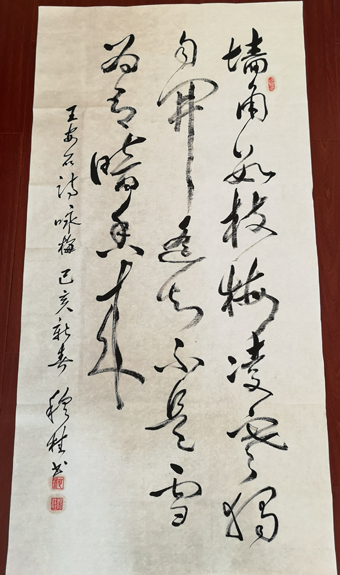 墙角数枝梅凌寒独
自开遥知不是雪
为有暗香来
王安石诗咏梅己亥新春穆桂书